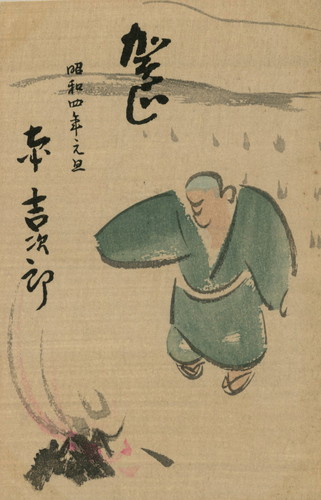 賀正
昭和四年元旦
吉次郎